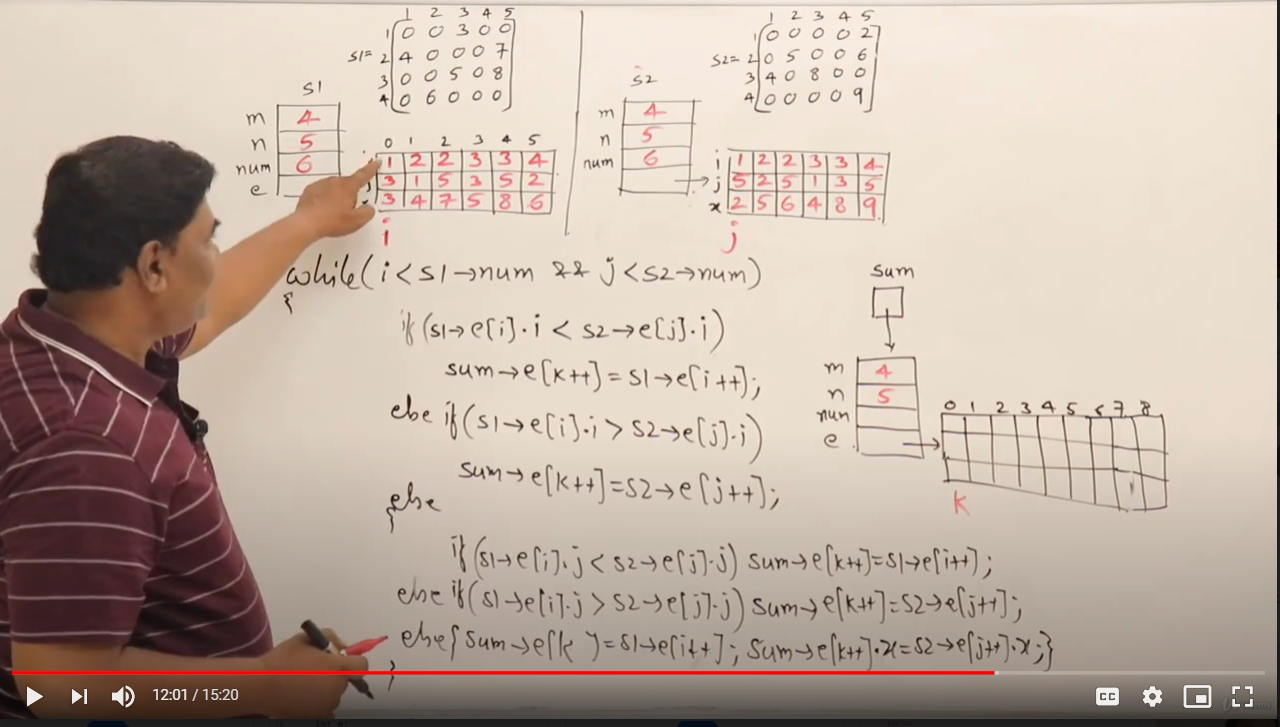 1 2 3 4 5
S1=
1 0 0 3 0 0
2 4 0 0 0 7
3 0 0 5 0 8
4 0 6 0 0 0
S1
m 4
n 5
num 6
e
0 1 2 3 4 5
1 2 2 3 3 4
3 1 5 3 5 2
3 4 7 5 8 6
i
1 2 3 4 5
S2=
1 0 0 0 0 2
2 0 5 0 0 6
3 4 0 8 0 0
4 0 0 0 0 9
S2
m 4
n 5
num 6
i 1 2 2 3 3 4
j 5 2 5 1 3 5
x 2 5 6 4 8 9
j
while(i<S1→num && j<S2→num)
{
if(S1→e[i].i < S2→e[j].i)
sum→e[k++]=S1→e[i++];
else if(S1→e[i].i > S2→e[j].i)
sum→e[k++]=S2→e[j++];
else
{
if(S1→e[i].j < S2→e[j].j) sum→e[k++]=S1→e[i++];
else if(S1→e[i].j > S2→e[j].j) sum→e[k++]=S2→e[j++];
else{ sum→e[k ]=S1→e[i++]; sum→e[k++].x=S2→e[j++].x;}
}
sum
m 4
n 5
num
e
0 1 2 3 4 5 6 7 8
k
12:01 / 15:20
CC